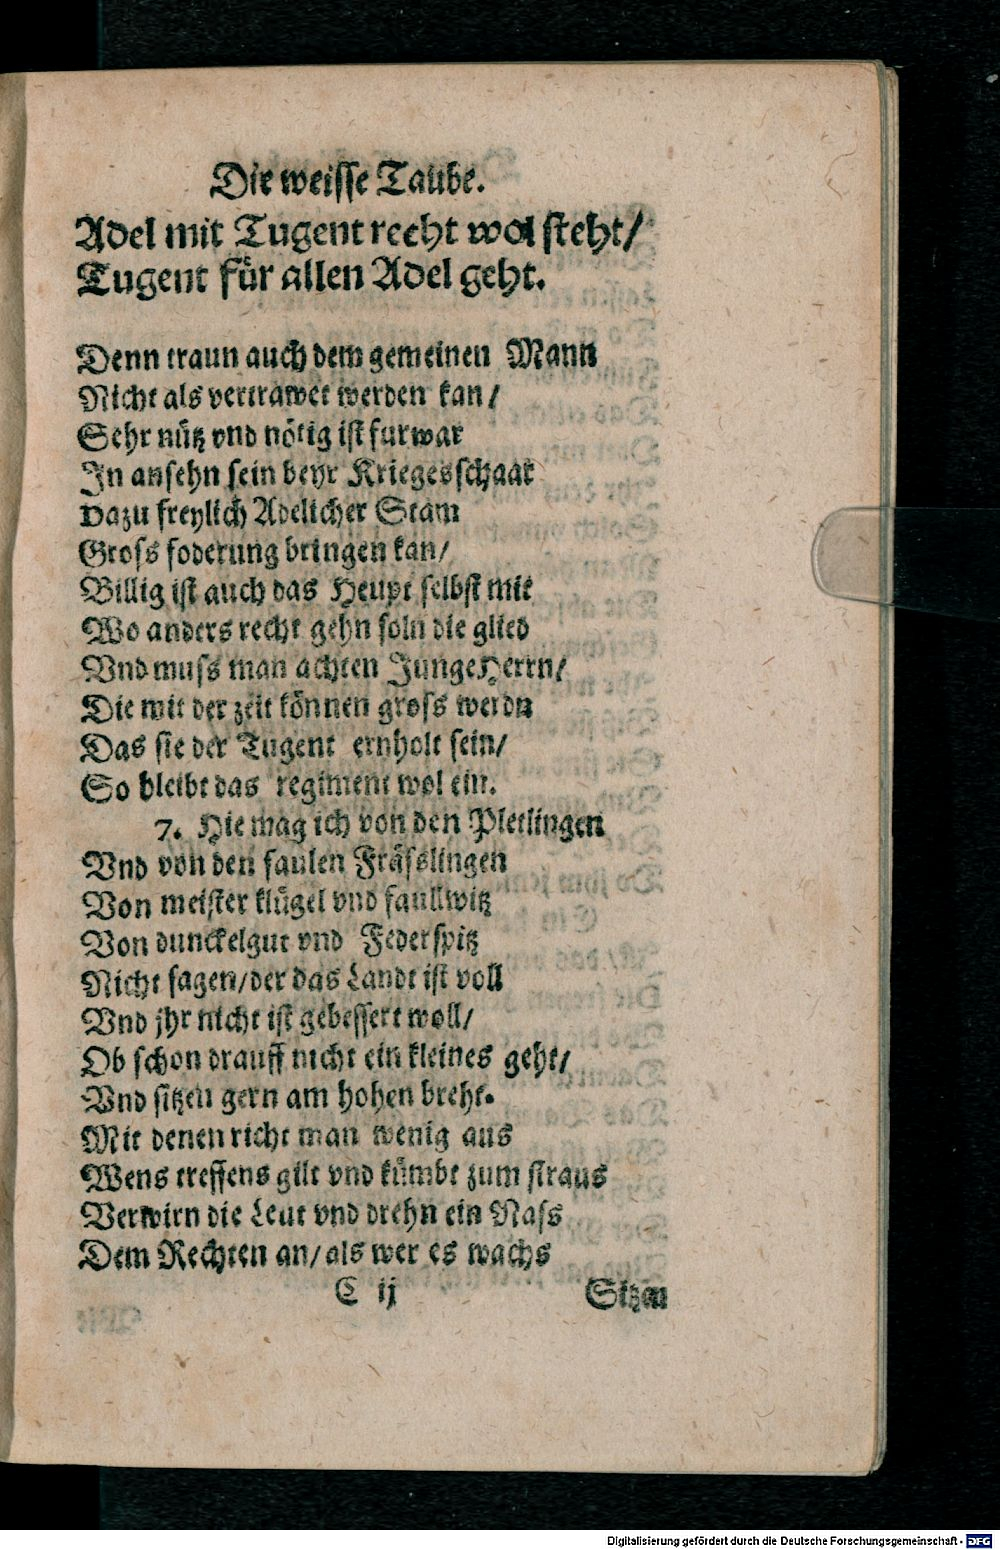 Die weisse Taube.
Adel mit Tugent recht wol steht/
Tugent für allen Adel geht.
Denn traun auch dem gemeinen Mann
Nicht als vertrawet werden kan/
Sehr nütz vnd nötig ist furwar
In ansehn sein beyr Kriegesschaar
Dazu freylich Adelicher Stam
Gross foderung bringen kan/
Billig ist auch das Heupt selbst mit
Wo anders recht gehn soln die glied
Vnd muss man achten JungeHerrn/
Die mit der zeit können gross werdn
Das sie der Tugent ernholt sein/
So bleibt das regiment wol ein.
7. Hie mag ich von den Pletlingen
Vnd von den faulen Frässlingen
Von meister klügel vnd faullwitz
Von dunckelgut vnd Federspitz
Nicht sagen/der das Landt ist voll
Vnd jhr nicht ist gebessert woll/
Ob schon drauff nicht ein kleines geht/
Vnd sitzen gern am hohen breht.
Mit denen richt man wenig aus
Wens treffens gilt vnd kümbt zum straus
Verwirn die Leut vnd drehn ein Nass
Dem Rechten an/als wer es wachs
C ij Sitzen
Digitalisierung gefördert durch die Deutsche Forschungsgemeinschaft - DFG